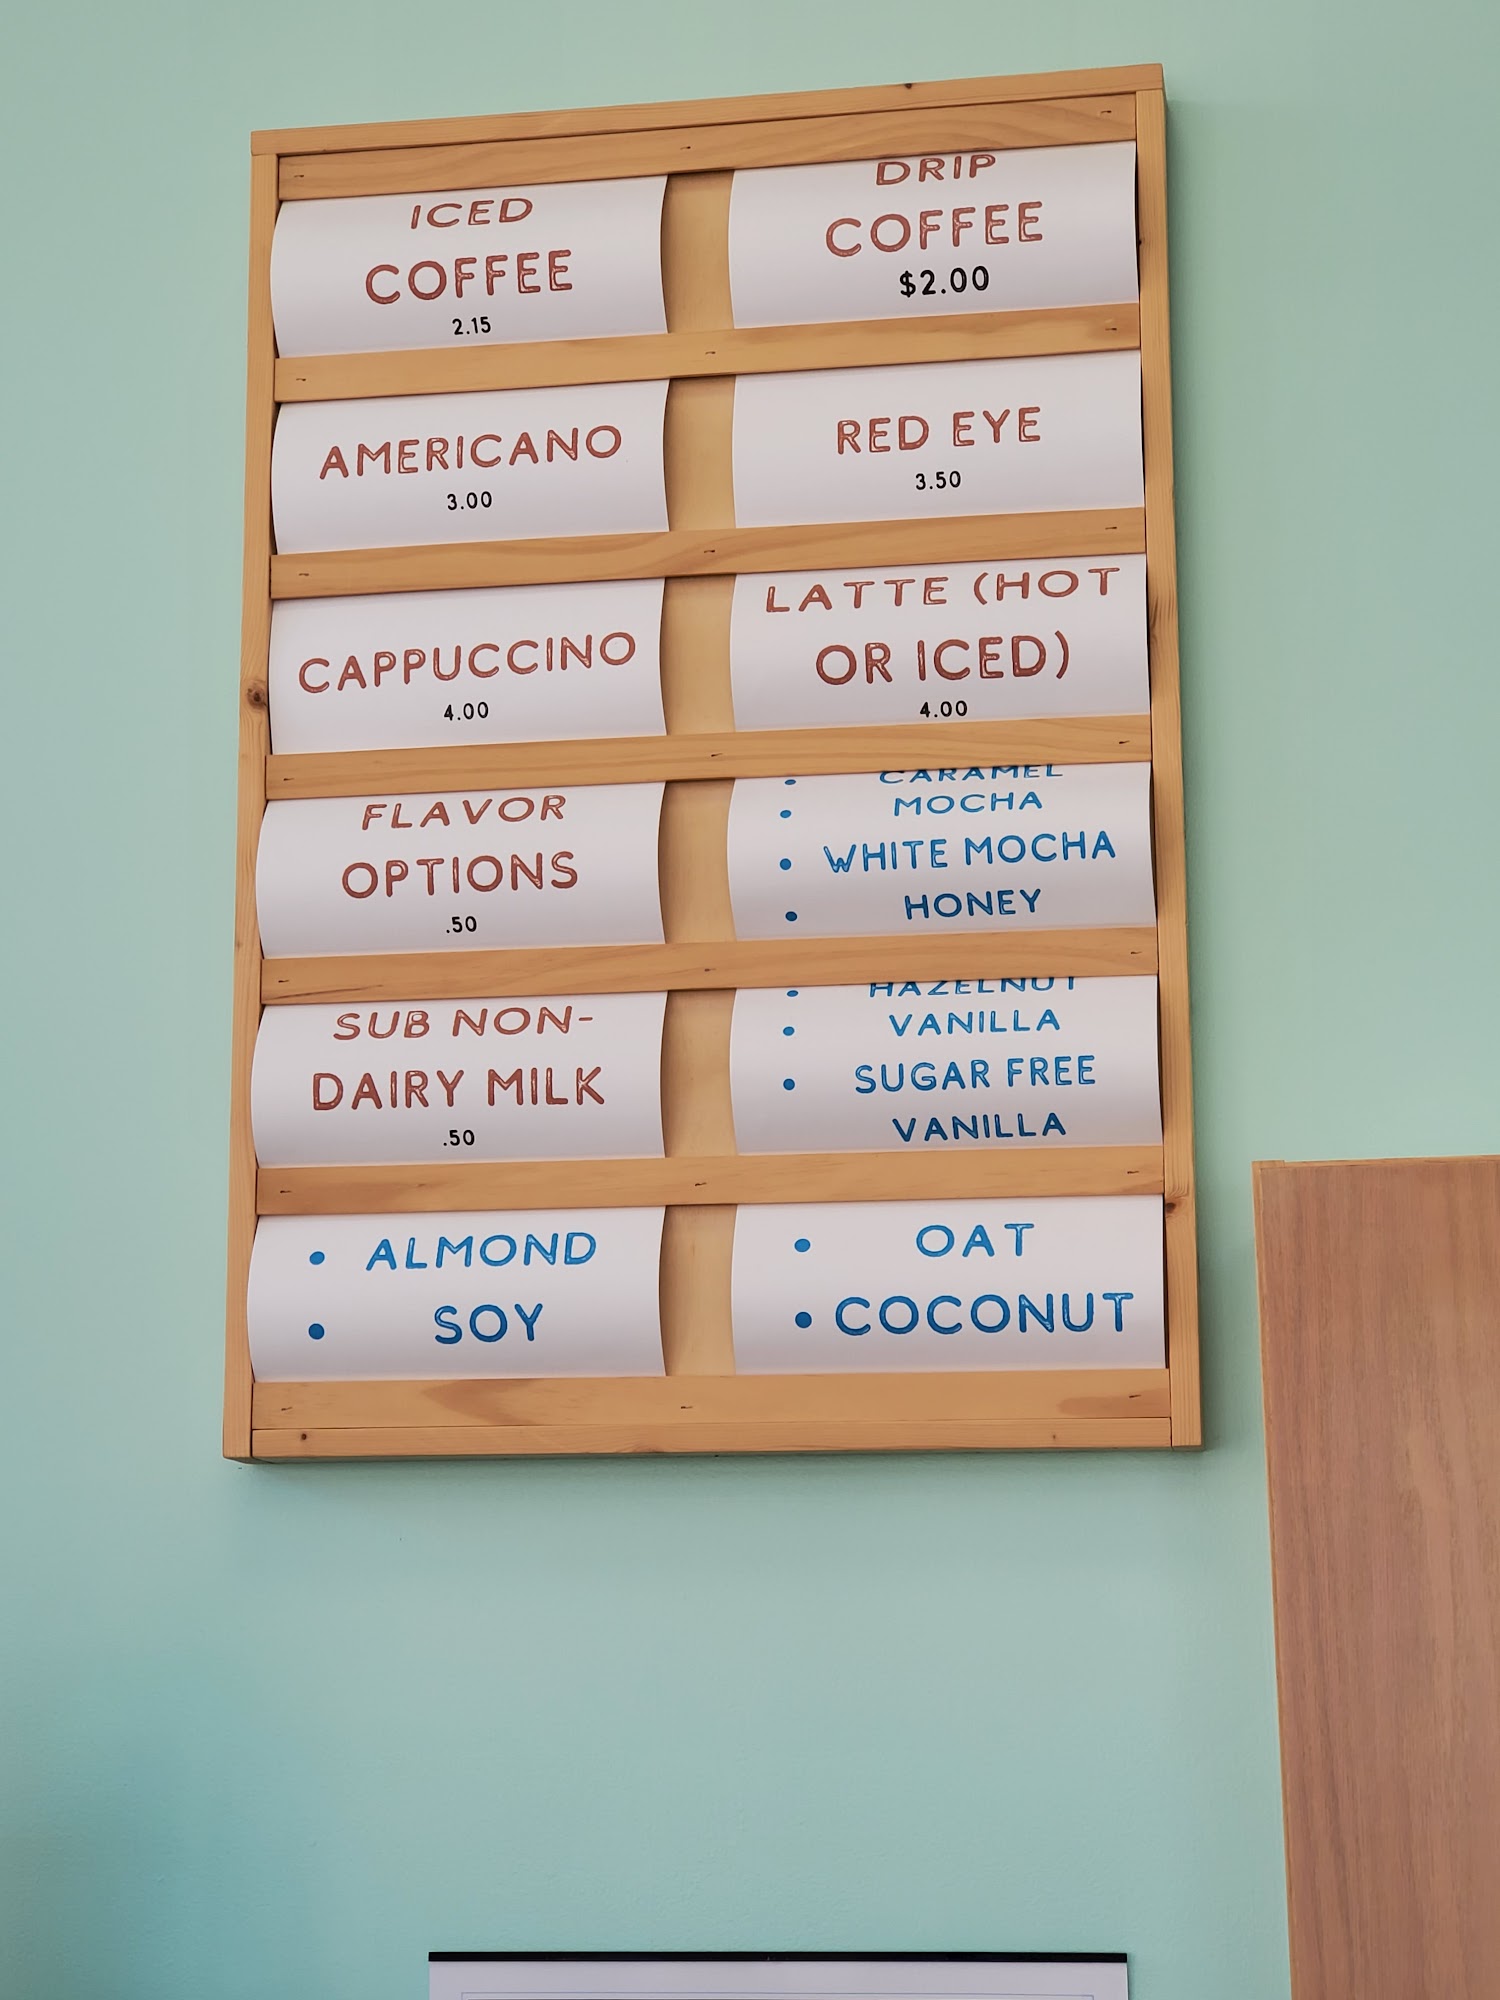 ICED
COFFEE
2.15
DRIP
COFFEE
$2.00
AMERICANO
3.00
RED EYE
3.50
CAPPUCCINO
4.00
LATTE (HOT
OR ICED)
4.00
FLAVOR
OPTIONS
.50
• CARAMEL
• MOCHA
• WHITE MOCHA
• HONEY
SUB NON-
DAIRY MILK
.50
• HAZELNUT
• VANILLA
• SUGAR FREE
VANILLA
• ALMOND
• SOY
• OAT
• COCONUT